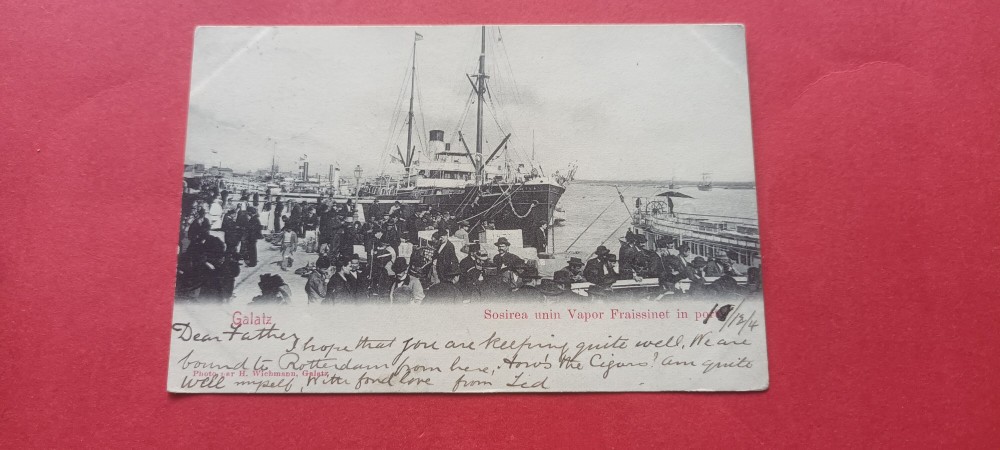 Galatz
Sosirea unin Vapor Fraissinet in port
18/12/4
Dear Father,
I hope that you are keeping quite well. We are
bound to Rotterdam from here, How's the Cigars? am quite
well myself, With fond love from
Photo par H. Wichmann, Galatz